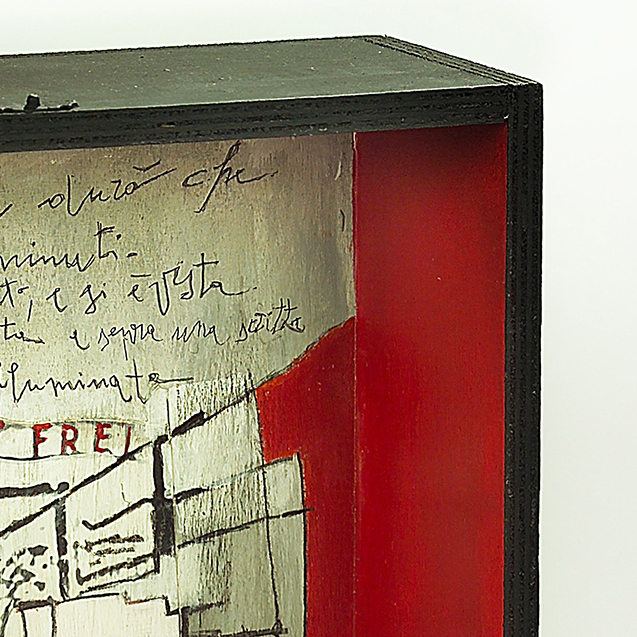 durò che
minuti.
e si è vista
e sopra una scritta
illuminata
FREI